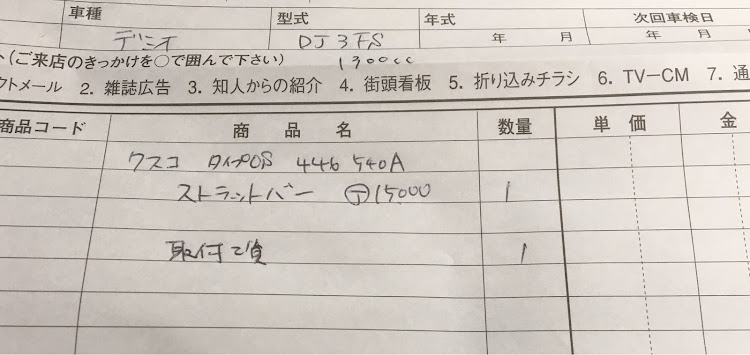 車種 型式 年式 次回車検日
デミオ DJ3FS 年 月 年 月
(ご来店のきっかけを○で囲んで下さい) 1300cc
クトメール 2. 雑誌広告 3. 知人からの紹介 4. 街頭看板 5. 折り込みチラシ 6. TV−CM 7. 通
商品コード 商品名 数量 単価 金
クスコ タイプOS 446 540A
ストラットバー Ⓣ15000 1
取付工賃 1